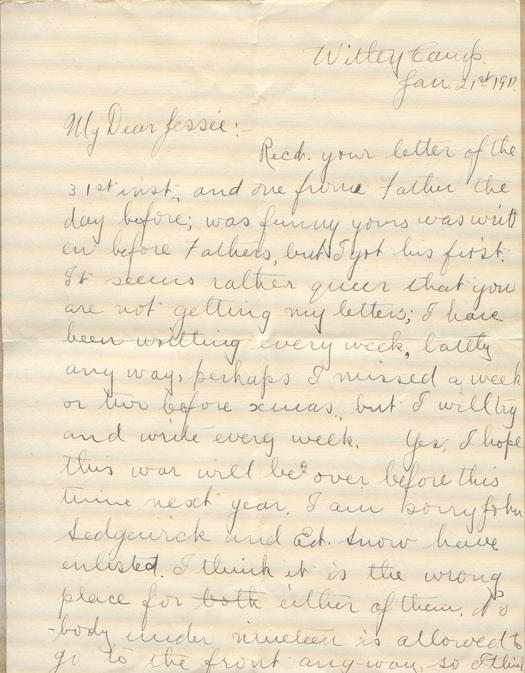 Witley Camp.
Jan. 21st 191
My Dear Jessie:-
Recd. your letter of the
31st inst., and one from Father the
day before; was funny yours was writt
en before Fathers, but I got his first.
It seems rather queer that you
are not getting my letters; I have
been writting every week, lately
any way, perhaps I missed a week
or two before xmas, but I will try
and write every week. Yes, I hope
this war will be over before this
time next year. I am sorry John
Sedgewick and Ed. Snow have
enlisted. I think it is the wrong
place for both either of them. No
-body under nineteen is allowed to
go to the front any-way, so I think